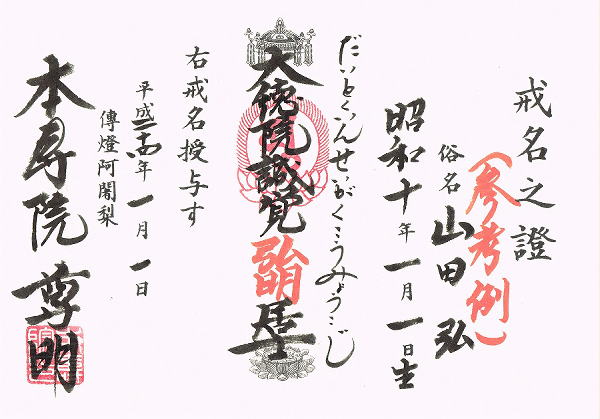 戒名之證
(参考例)
俗名 山田 弘
昭和十年一月一日生
だいとくいんせいがくこうみょうこじ
大徳院誠覚弘明居士
右戒名授与す
平成二十四年一月一日
傳燈阿闍梨
本寿院 尊明